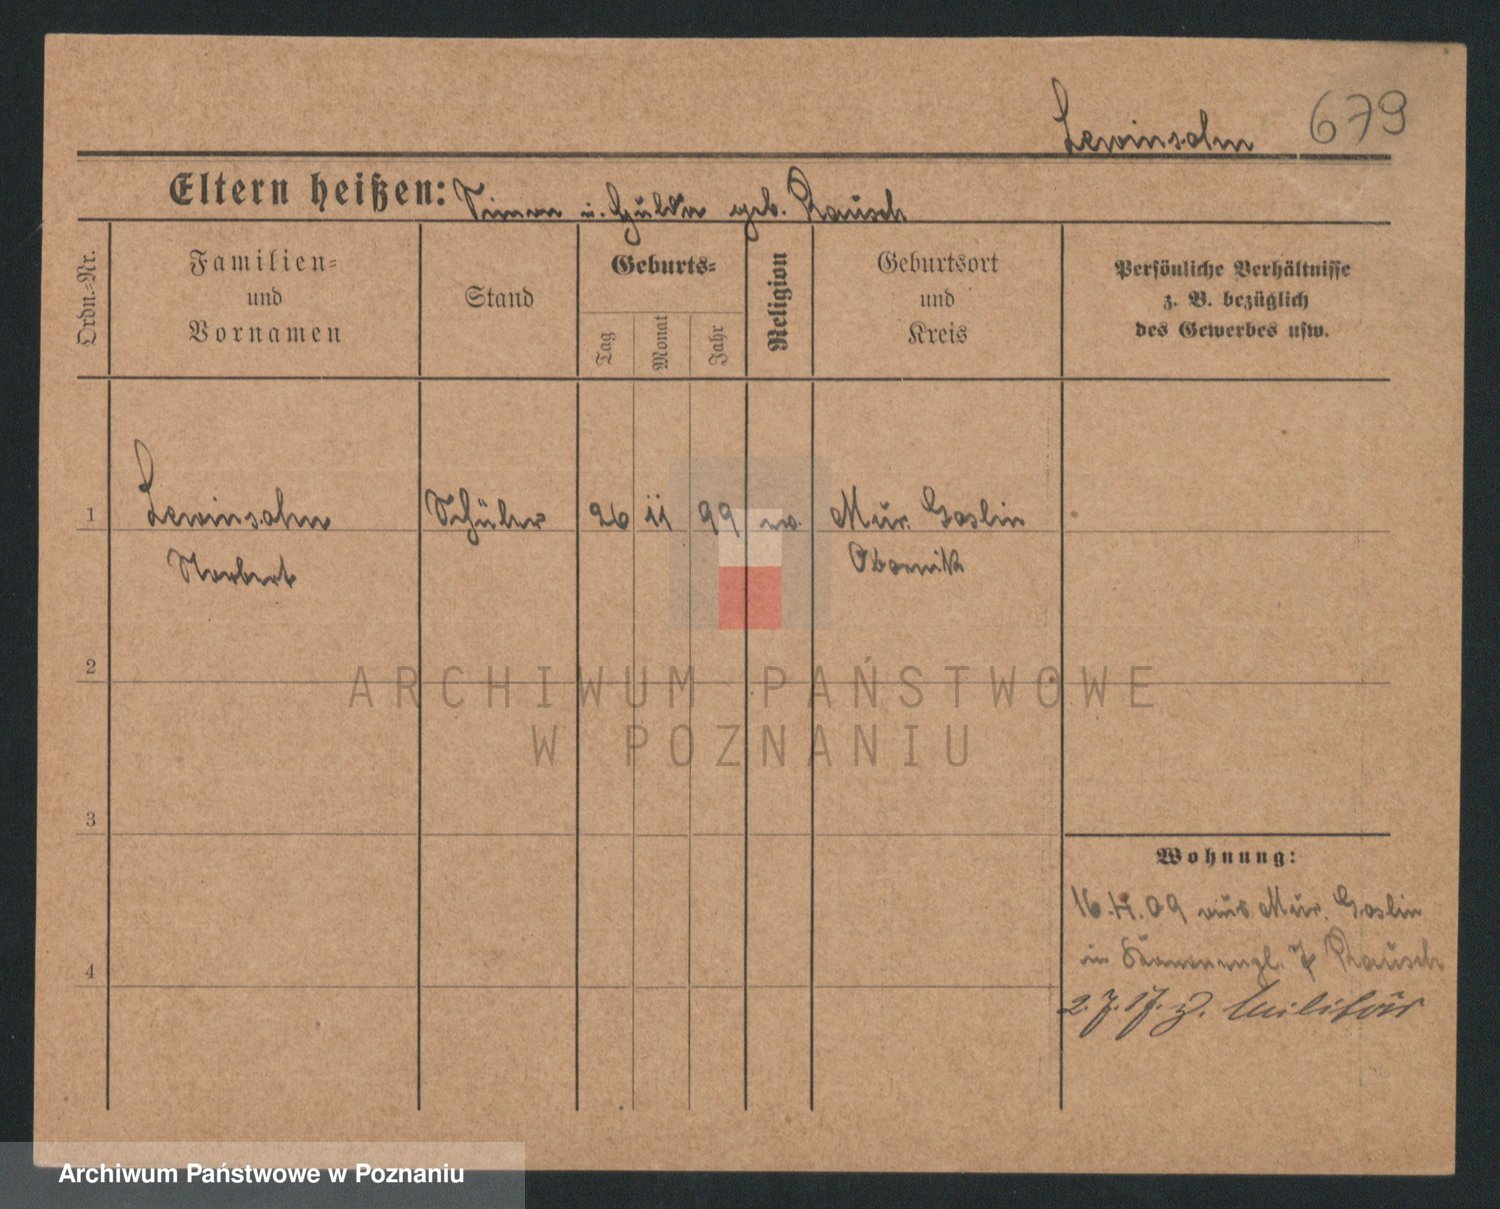 Lewinsohn 679
Eltern heißen: Simon u. Hulda geb. Rausch
Ordn.-Nr.
Familien-
und
Vornamen
Stand
Geburts-
Tag
Monat
Jahr
Religion
Geburtsort
und
Kreis
Persönliche Verhältnisse
z. B. bezüglich
des Gewerbes usw.
1 Lewinsohn Schüler 26 11 99 Mur. Goslin
Norbert Obornik
2
3
4
Wohnung:
16. 4. 09 aus Mur. Goslin
in Rausch
2. 7. 17. z. Militär
ARCHIWUM PAŃSTWOWE
W POZNANIU
Archiwum Państwowe w Poznaniu